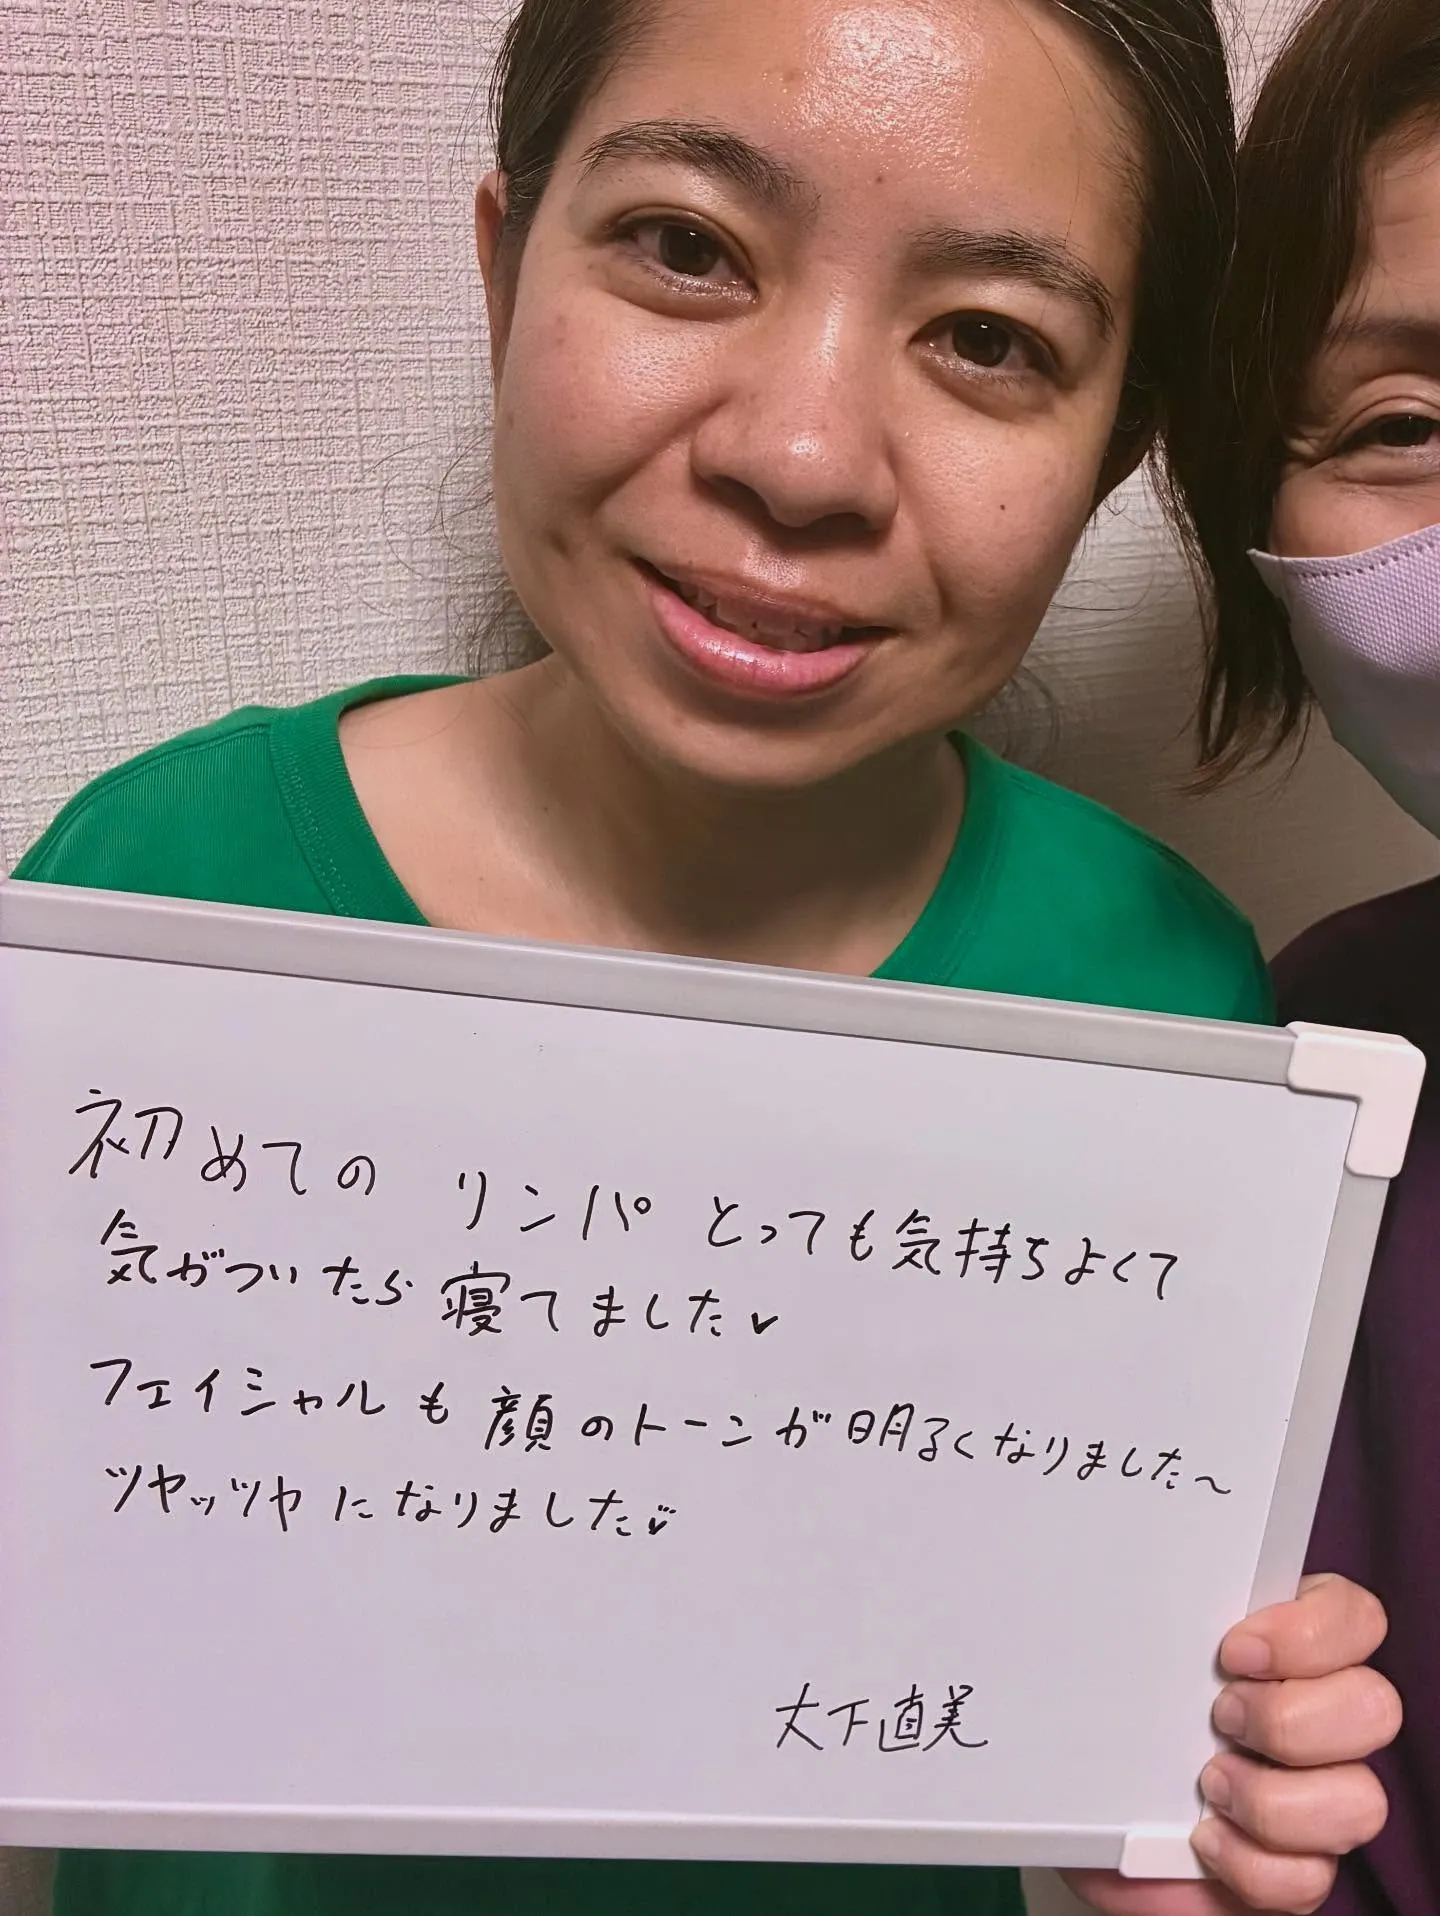 初めての リンパ とっても気持ちよくて
気がついたら寝てました♥
フェイシャルも顔のトーンが明るくなりました〜
ツヤッツヤになりました♥
大下直美